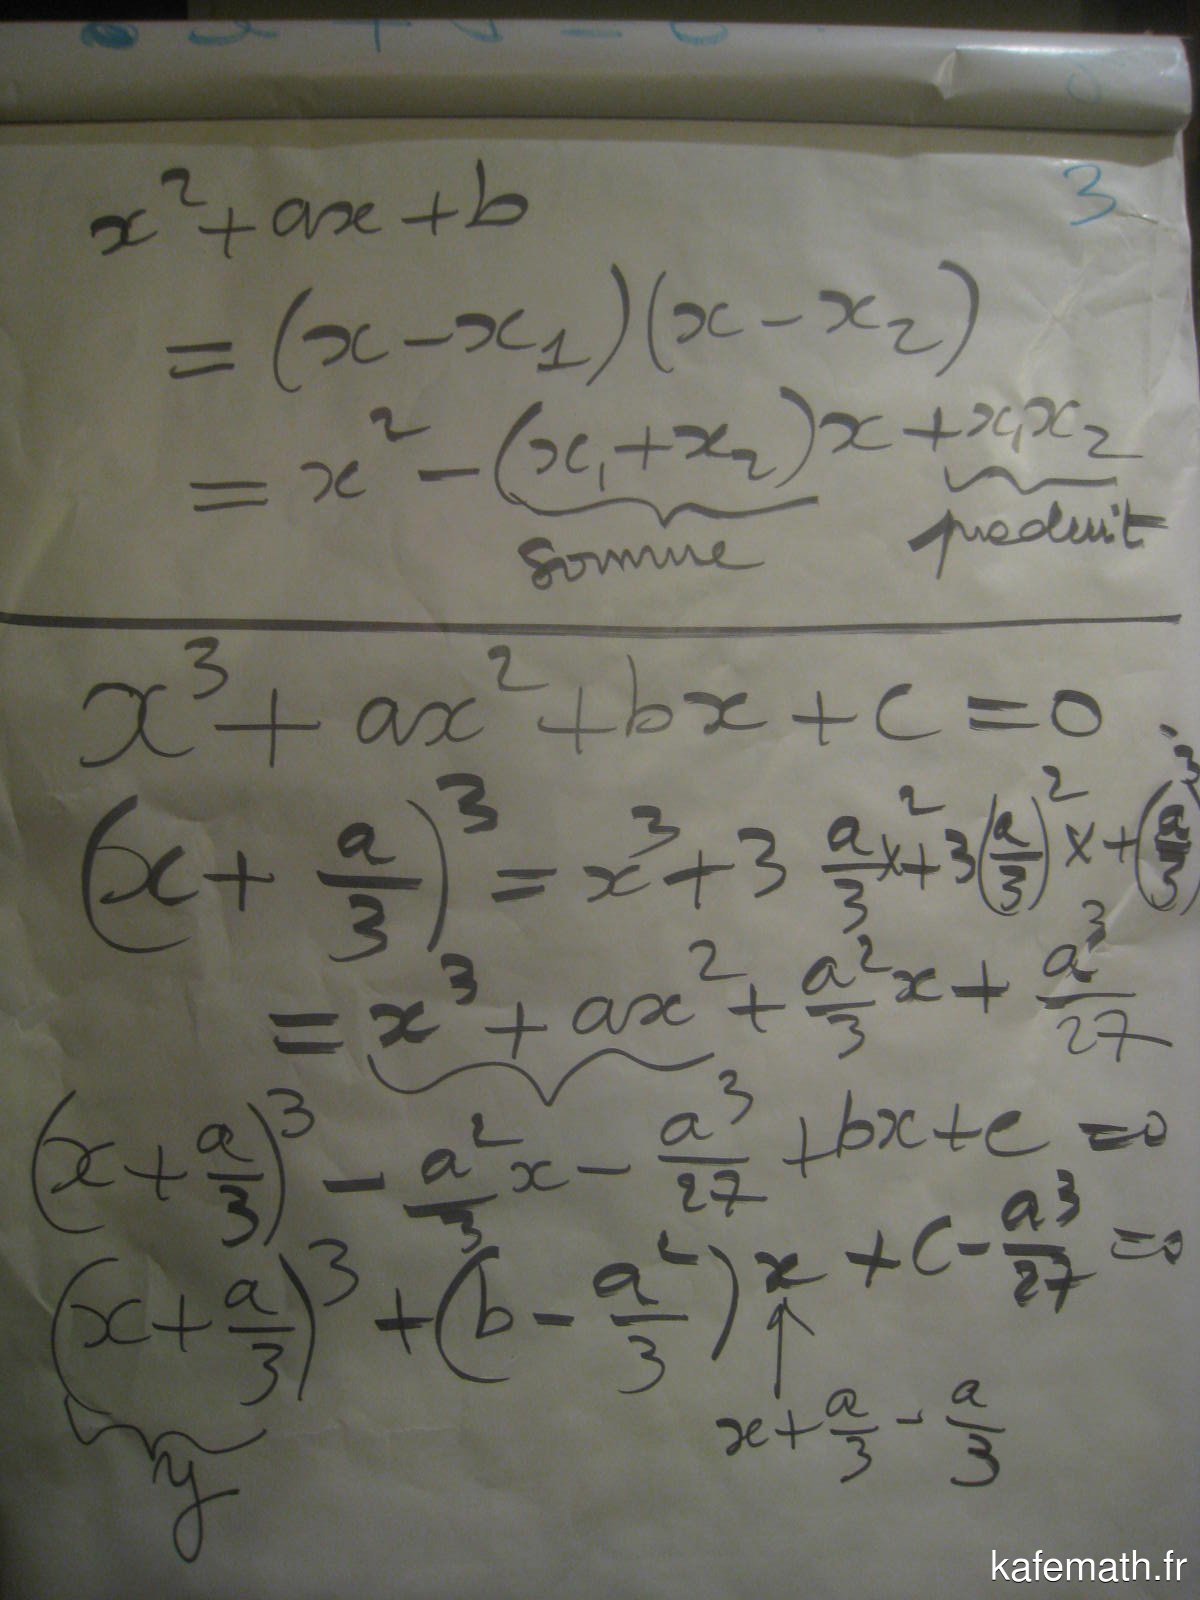 3
x² + ax + b
= (x − x₁)(x − x₂)
= x² − (x₁ + x₂)x + x₁x₂
somme produit
x³ + ax² + bx + c = 0
(x + a/3)³ = x³ + 3 a/3 x² + 3(a/3)² x + (a/3)³
= x³ + ax² + a²/3 x + a³/27
(x + a/3)³ − a²/3 x − a³/27 + bx + c = 0
(x + a/3)³ + (b − a²/3) x + c − a³/27 = 0
x + a/3 − a/3
y
kafemath.fr